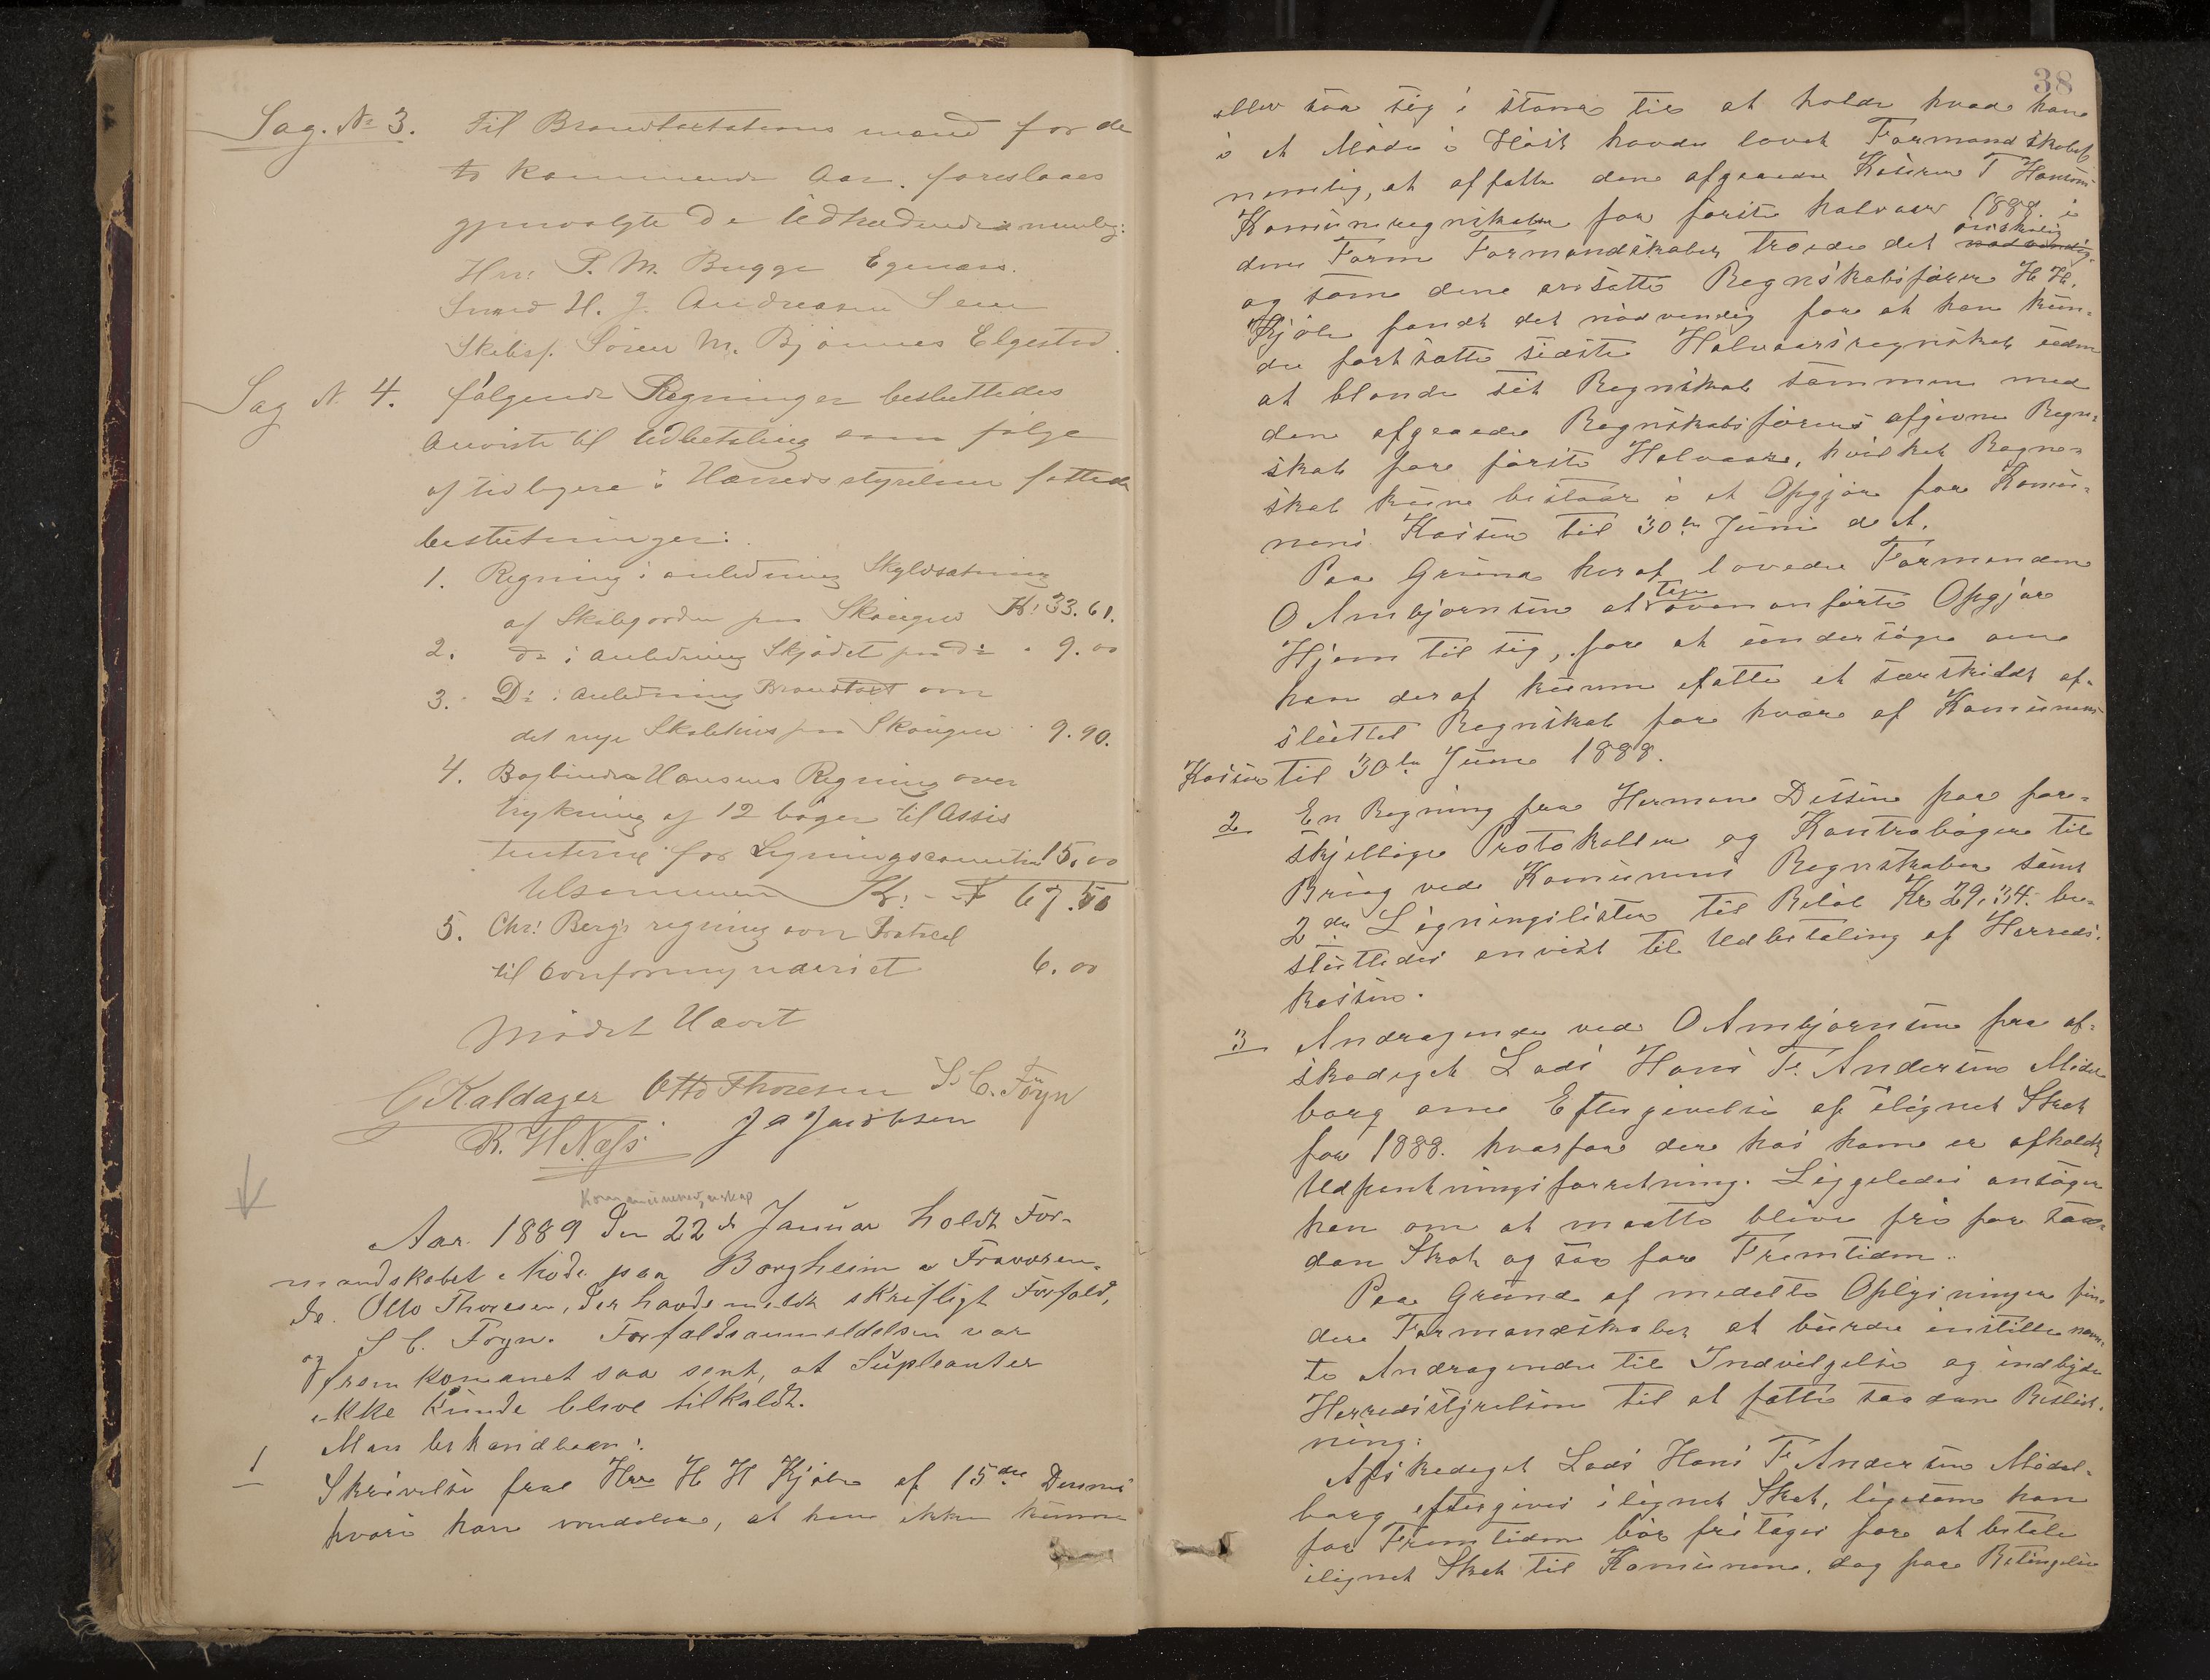 Sag. № 3. Til Brandtaxtations mænd for de
to kommende Aar. foreslaaes
gjenvalgte De Udtrædende nemlig:
Hrr: P. M. Bugge Egenæs.
Smed H. J. Andreasen Sem
Skibsf. Sören M. Bjönnes Elgested.
Sag N. 4. fölgende Regninger besluttedes
anviste til Udbetaling som fölge
af tidligere i Herredsstyrelsen fattede
beslutninger:
1. Regning i anledning Skyldsætning
af Skolegorden paa Skaugen Kr: 33.61.
2. Do i Anledning Skjödet paa do " 9.00
3. Do i Anledning Brandtaxt om
det nye Skolehus paa Skaugen " 9.90.
4. Bogbinder Hansens Regning over
trykning af 12 böger til Assis
tenterne for Ligningscomiteen 15.00
Tilsammen Kr: 67.50
5. Chr: Berg's regning over Protocol
til Overformynderiet 6.00
Mödet Hævet
G Kaldager Otto Thoresen S. C. Föyn
R. H Næss J A Jacobsen
Kommuneregnskap
Aar. 1889 Den 22de Januar holdt For-
mandskabet Möde paa Borgheim. Fraværen-
de Otto Thoresen, der havde meldt skrifligt Forfald,
og S C. Foyn. Forfaldsanmeldelsen var
fremkommet saa sent, at Supleanter
ikke kunde blive tilkaldt.
Man behandlede:
1 Skrivelse fra Hrr H H Kjöle af 15de Dennes
hvori han meddeler, at han ikke kunne
38
eller saa sig i stand til at holde hvad han
i et Möde i Höst havde lovet Formandskabet
nemlig, at affatte den afgaaede Kaserer T Hansens
Komuneregnskaber for förste halvaar 1888. i
den Form Formandskabet troede det önskelig nødvendig
og som den ansatte Regnskabsförer H. H.
Kjöle fandt det nödvendig for at han kun-
de fortsætte sidste Halvaarsregnskab uden
at blande sit Regnskab sammen med
den afgaaede Regnskabsförers afgivne Regn-
skab for förste Halvaar, hvilket Regn-
skab kun bestaar i et Opgjör for Komu-
nens Kasser til 30te Juni d A.
Paa Grund heraf lovede Formanden
O Ambjörnsen at tage ovenanförte Opgjör
Hjem til sig, for at undersöge om
han deraf kunne afatte et særskildt af-
sluttet Regnskab for hver af Komunens
Kasser til 30te Juni 1888.
2 En Regning fra Herman Dessen paa for-
skjellige Protokoller og Kontraböger til
Brug ved Komunens Regnskaber samt
2de Ligningslister til Belöb Kr 29.34. be-
sluttedes anvist til Udbetaling af Herreds-
kassen.
3 Andragende ved O Ambjörnsen fra af-
skediget Lods Hans F. Andersen Midel-
borg om Eftergivelse af ilignet Skat
for 1888. hvorfor der hos ham er afholdt
Udpantningsforretning. Liggeledes ansöger
han om at maatte blive fri for saa-
dan Skat og saa for Fremtiden.
Paa Grund af meddelte Oplysninger fin-
der Formandskabet at burde instille nævn-
te Andragende til Indvilgelse og indbyde
Herredsstyrelsen til at fatte saadan Beslut-
ning:
Afskediget Lods Hans F Andersen Midel-
borg eftergives ilignet Skat, ligesom han
for Fremtiden bör fritages for at betale
ilignet Skat til Komunen, dog paa Betingelse